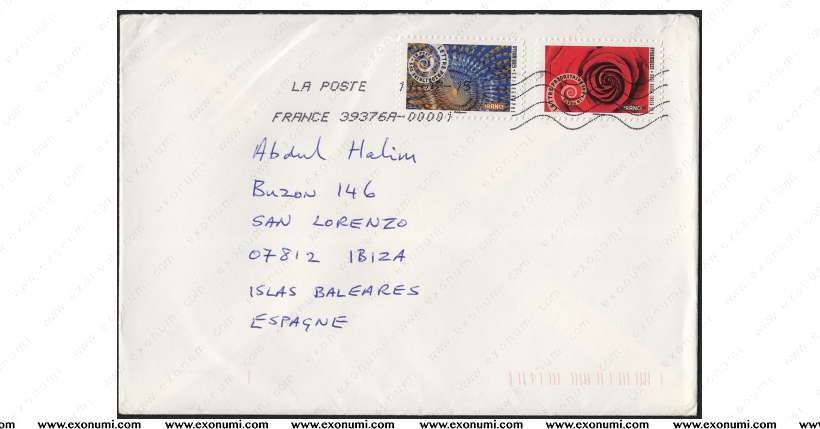 LA POSTE
FRANCE 39376A-00001
FRANCE
FRANCE
Abdul Halim
BUZON 146
SAN LORENZO
07812 IBIZA
ISLAS BALEARES
ESPAGNE
www.exonumi.com www.exonumi.com www.exonumi.com www.exonumi.com www.exonumi.com